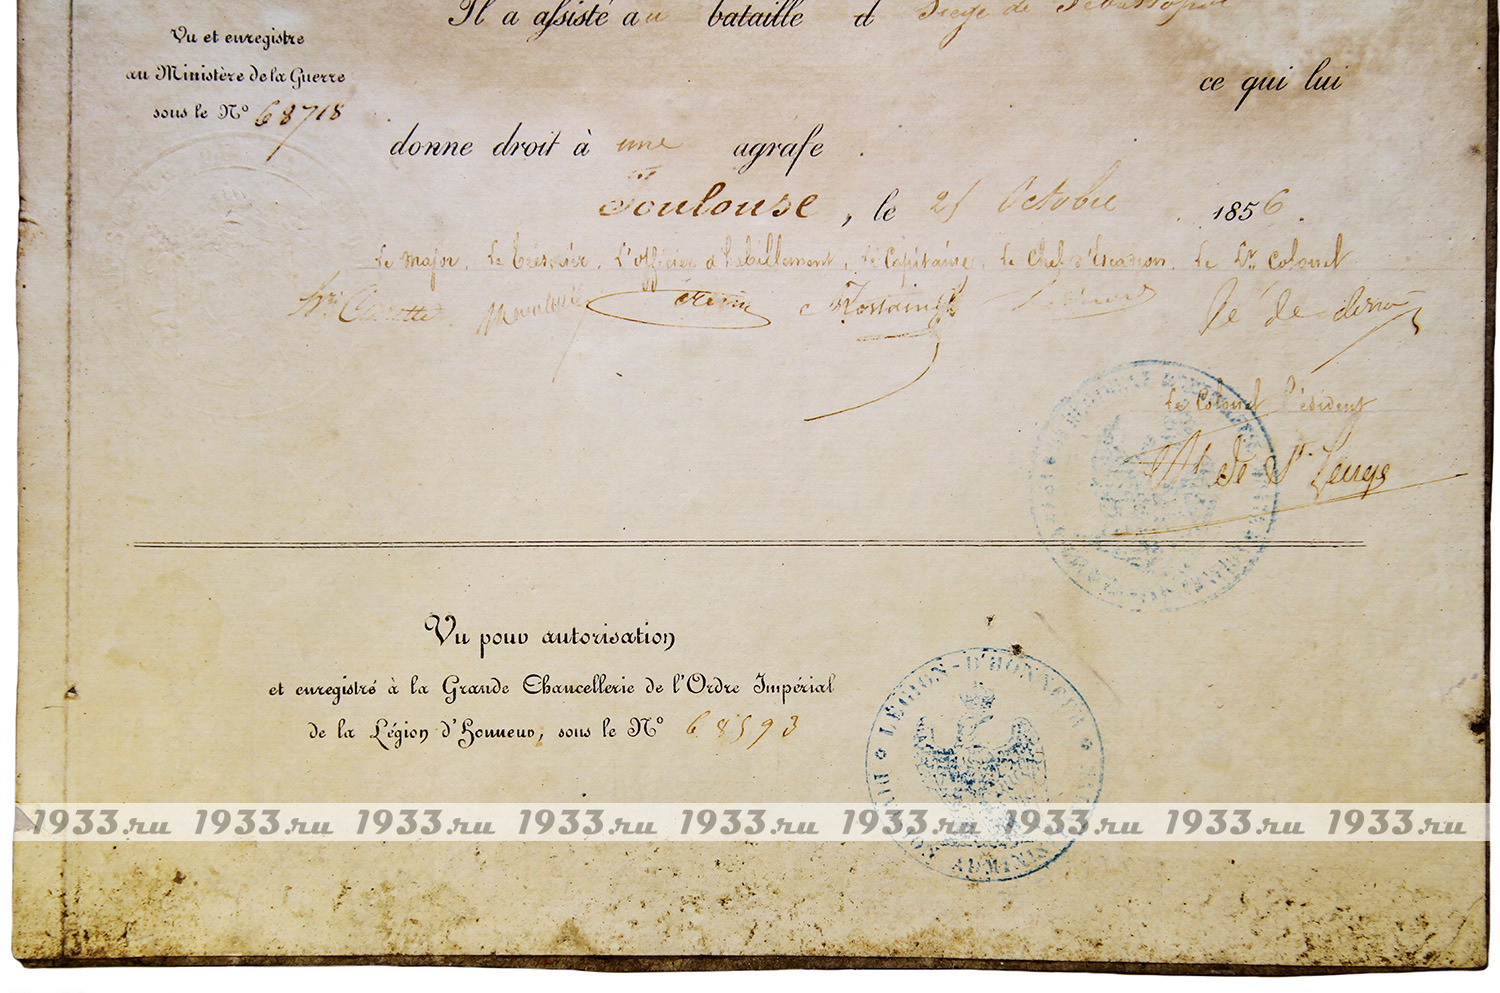 Il a assisté au bataille d Siège de Sébastopol
Vu et enregistre
au Ministère de la Guerre
sous le Nº 68718
ce qui lui
donne droit à une agrafe .
Toulouse , le 21 Octobre 1856 .
Le Major, Le Trésorier, L'Officier d'habillement, Le Capitaine, Le Chef d'Escadron, Le Lt Colonel
Le Colonel Président
de St.
Vu pour autorisation
et enregistré à la Grande Chancellerie de l'Ordre Impérial
de la Légion d'Honneur, sous le Nº 68593
LÉGION-D'HONNEUR
1933.ru 1933.ru 1933.ru 1933.ru 1933.ru 1933.ru 1933.ru 1933.ru 1933.ru